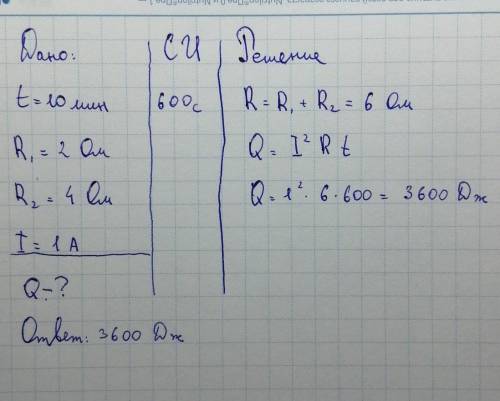 Дано:
t = 10 мин
R₁ = 2 Ом
R₂ = 4 Ом
I = 1 А
Q - ?
СИ
600с
Решение
R = R₁ + R₂ = 6 Ом
Q = I² R t
Q = 1² · 6 · 600 = 3600 Дж
Ответ: 3600 Дж